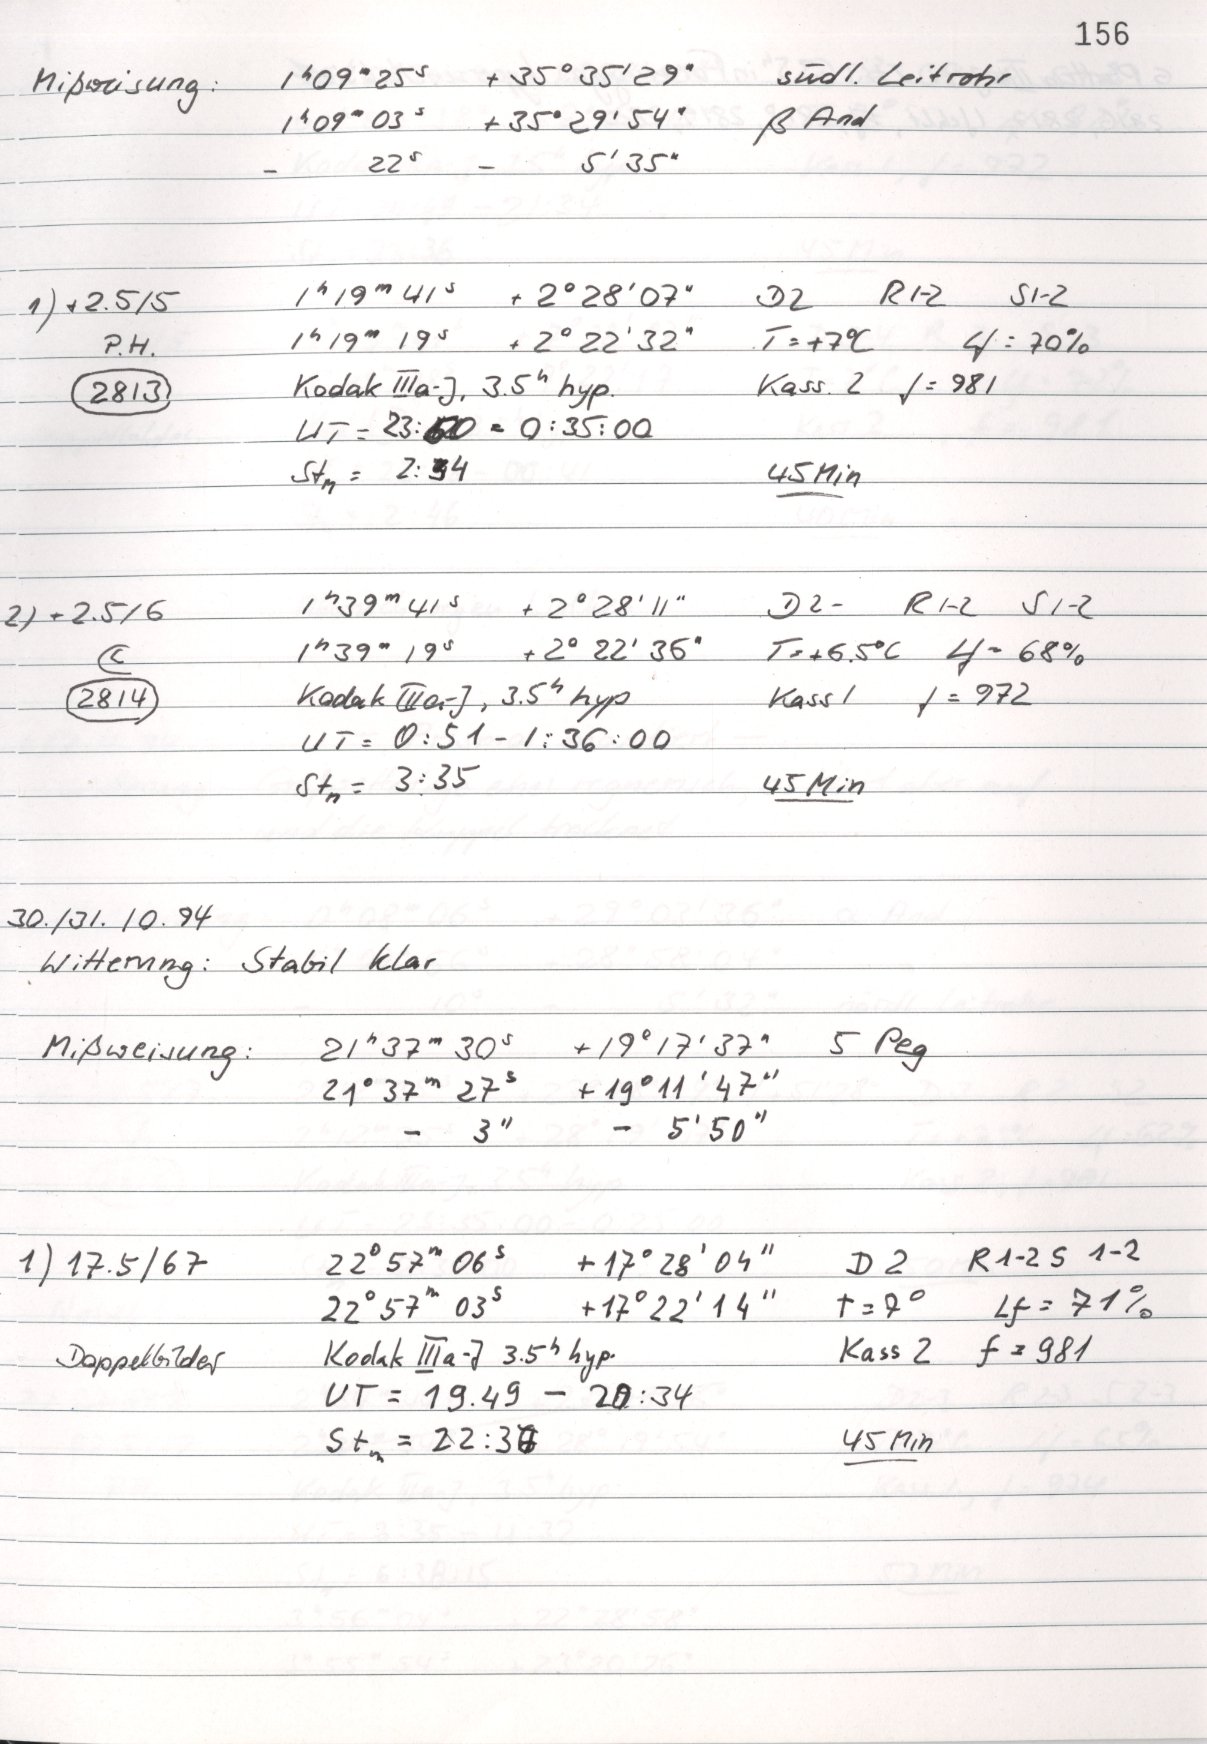 156
Mißweisung: 1ʰ09ᵐ25ˢ +35°35'29" südl. Leitrohr
1ʰ09ᵐ03ˢ +35°29'54" β And
- 22ˢ - 5'35"
1) +2.5/5 1ʰ19ᵐ41ˢ +2°28'07" D2 R1-2 S1-2
P.H. 1ʰ19ᵐ19ˢ +2°22'32" T=+7°C Lf=70%
2813 Kodak IIIa-J, 3.5ʰ hyp. Kass. 2 f=981
UT=23:50 - 0:35:00
Stₘ = 2:34 45 Min
2) +2.5/6 1ʰ39ᵐ41ˢ +2°28'11" D2- R1-2 S1-2
1ʰ39ᵐ19ˢ +2°22'36" T=+6.5°C Lf=68%
2814 Kodak IIIa-J, 3.5ʰ hyp Kass 1 f=972
UT= 0:51-1:36:00
Stₘ = 3:35 45 Min
30./31.10.94
Witterung: Stabil klar
Mißweisung: 21ʰ37ᵐ30ˢ +19°17'37" 5 Peg
21°37ᵐ27ˢ +19°11'47"
- 3" - 5'50"
1) 17.5/67 22°57ᵐ06ˢ +17°28'04" D2 R1-2 S 1-2
22°57ᵐ03ˢ +17°22'14" T=7° Lf=71%
Doppelbilder Kodak IIIa-J 3.5ʰ hyp. Kass 2 f=981
UT = 19.49 - 20:34
Stₘ = 45 Min